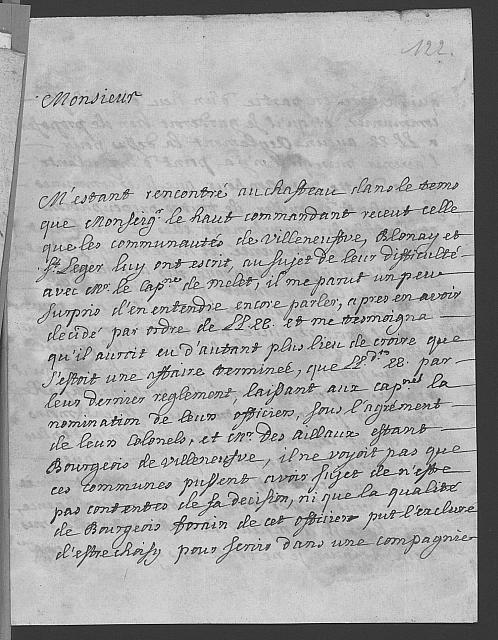 122.
Monsieur
M'estant rencontré au chasteau dans le tems
que Monseigr. le haut commandant receut celle
que les communautés de Villeneufve, Blonay et
St. Leger luy ont escrit, au sujet de leur difficulté
avec Mr. le Capne de melet, il me parut un peu
surpris d'en entendre encore parler, apres en avoir
decidé par ordre de LL. EE. et me tesmoigna
qu'il auroit eu d'autant plus lieu de croire que
s'estoit une affaire terminée, que LL. dtes EE. par
leur dernier reglement, laissant aux capnes la
nomination de leurs officiers, sous l'agrément
de leurs Colonels, et Mr. Des aillaux estant
Bourgeois de villeneufve, il ne voyoit pas que
ces communes pussent avoir sujet de n'estre
pas contentes de sa decision, ni que la qualité
de Bourgeois forain de cet officier put l'exclure
d'estre choisy pour servir dans une compagnie